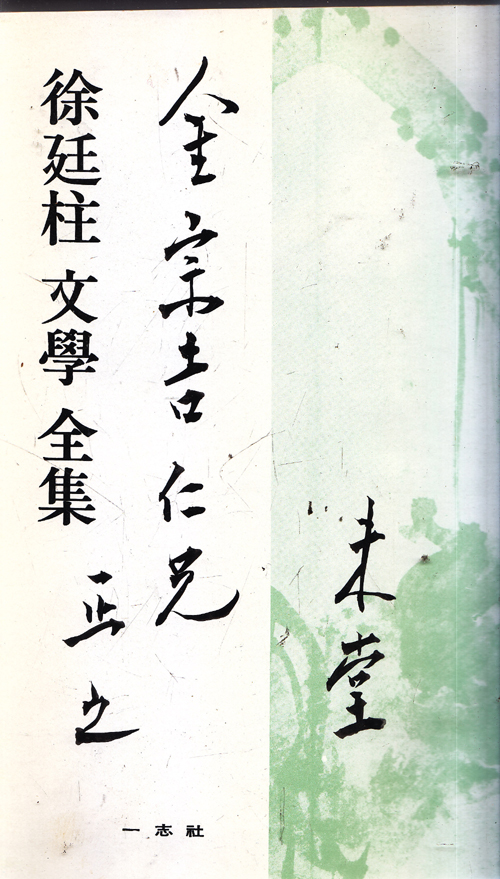 徐廷柱 文學 全集
金宗吉 仁兄
正之
未堂
一志社